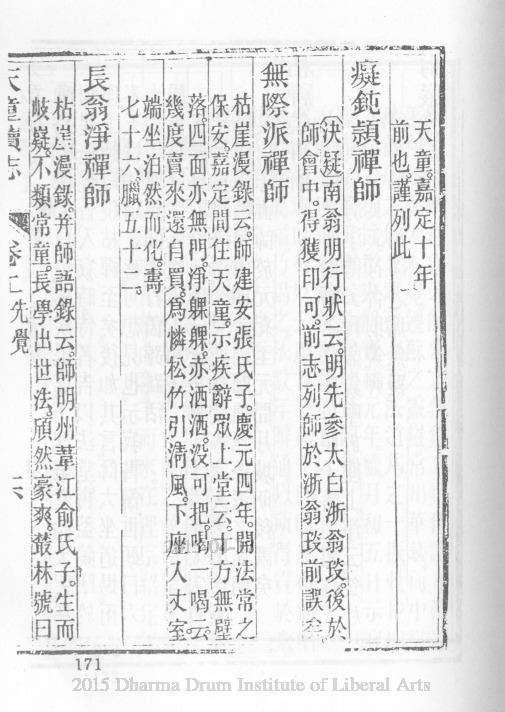 天童。嘉定十年
前也。謹列此
癡鈍頴禪師
決疑南翁明行狀云。明先參太白浙翁琰。後於
師會中。得獲印可。前志列師於浙翁琰前。誤矣。
無際派禪師
枯崖漫錄云。師建安張氏子。慶元四年。開法常之
保安。嘉定間住天童。示疾辭眾上堂云。十方無壁
落。四面亦無門。淨躶躶。赤洒洒。没可把。喝一喝云。
幾度賣來還自買。爲憐松竹引清風。下座入丈室
端坐泊然而化。壽
七十六。臘五十二。
長翁淨禪師
枯崖漫錄。并師語錄云。師明州葦江俞氏子。生而
岐嶷。不類常童。長學出世法。頎然豪爽。叢林號曰
天童續志 卷上 先覺 六
171
2015 Dharma Drum Institute of Liberal Arts